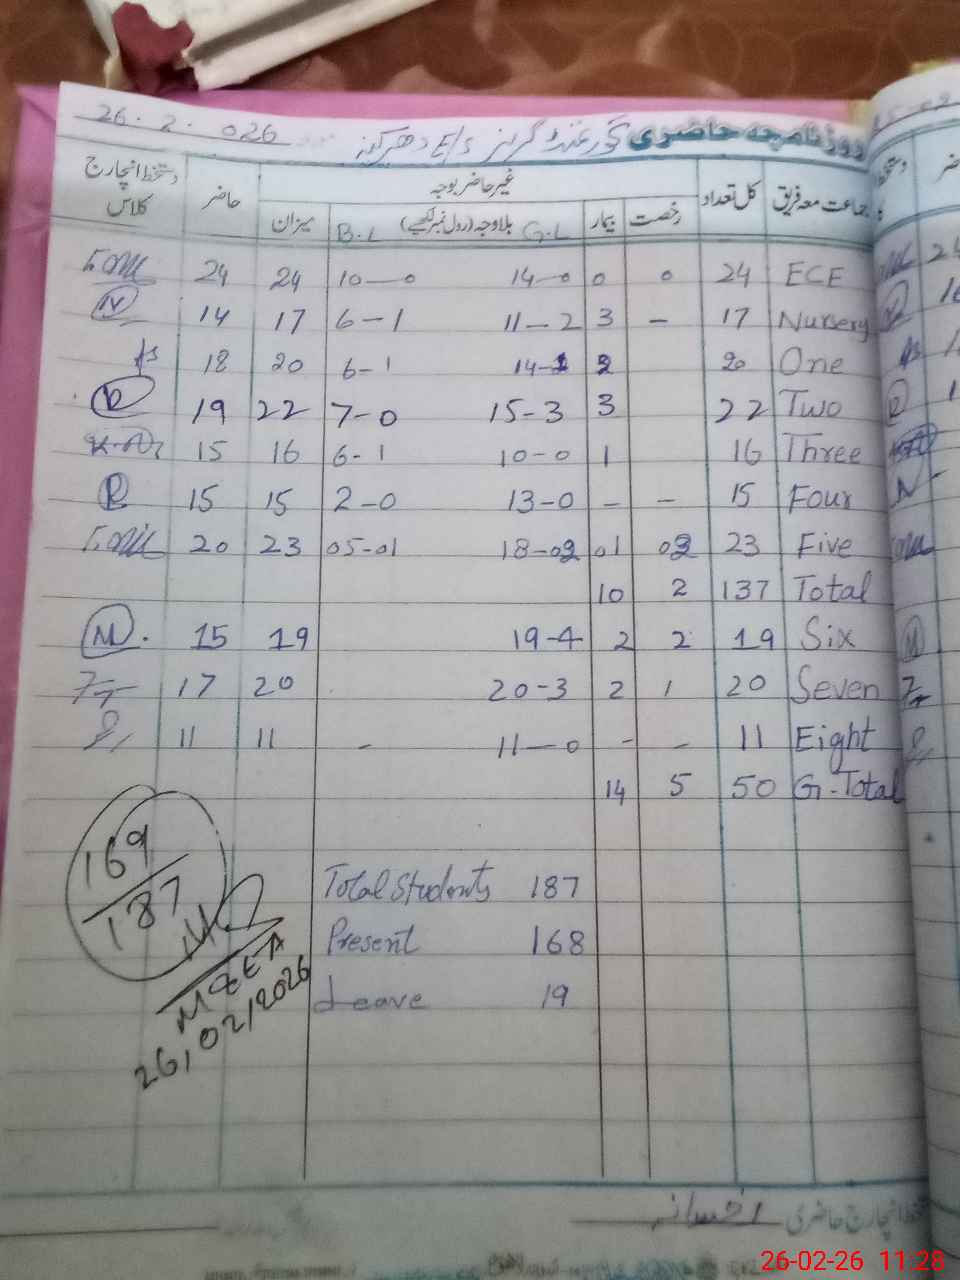 26.2.026 روزنامچہ حاضری گورنمنٹ گرلز E/S
دستخط انچارج کلاس حاضر غیر حاضر بوجہ کل تعداد جماعت معہ فریق
میزان B.L بلاوجہ (رول نمبر لکھیے) G.L بیمار رخصت
24 24 10—0 14—0 0 0 24 ECE
N 14 17 6-1 11-2 3 - 17 Nursery
18 20 6-1 20 One
R 19 22 7-0 15-3 3 22 Two
15 16 6-1 10-0 1 16 Three
R 15 15 2-0 13-0 - - 15 Four
20 23 05-01 18-02 01 23 Five
10 2 137 Total
M. 15 19 19-4 2 2 19 Six
17 20 20-3 2 1 20 Seven
11 11 - 11—0 - - 11 Eight
14 5 50 G-Total
169
187
Total Students 187
Present 168
Leave 19
26/02/2026
دستخط انچارج حاضری
26-02-26 11:28